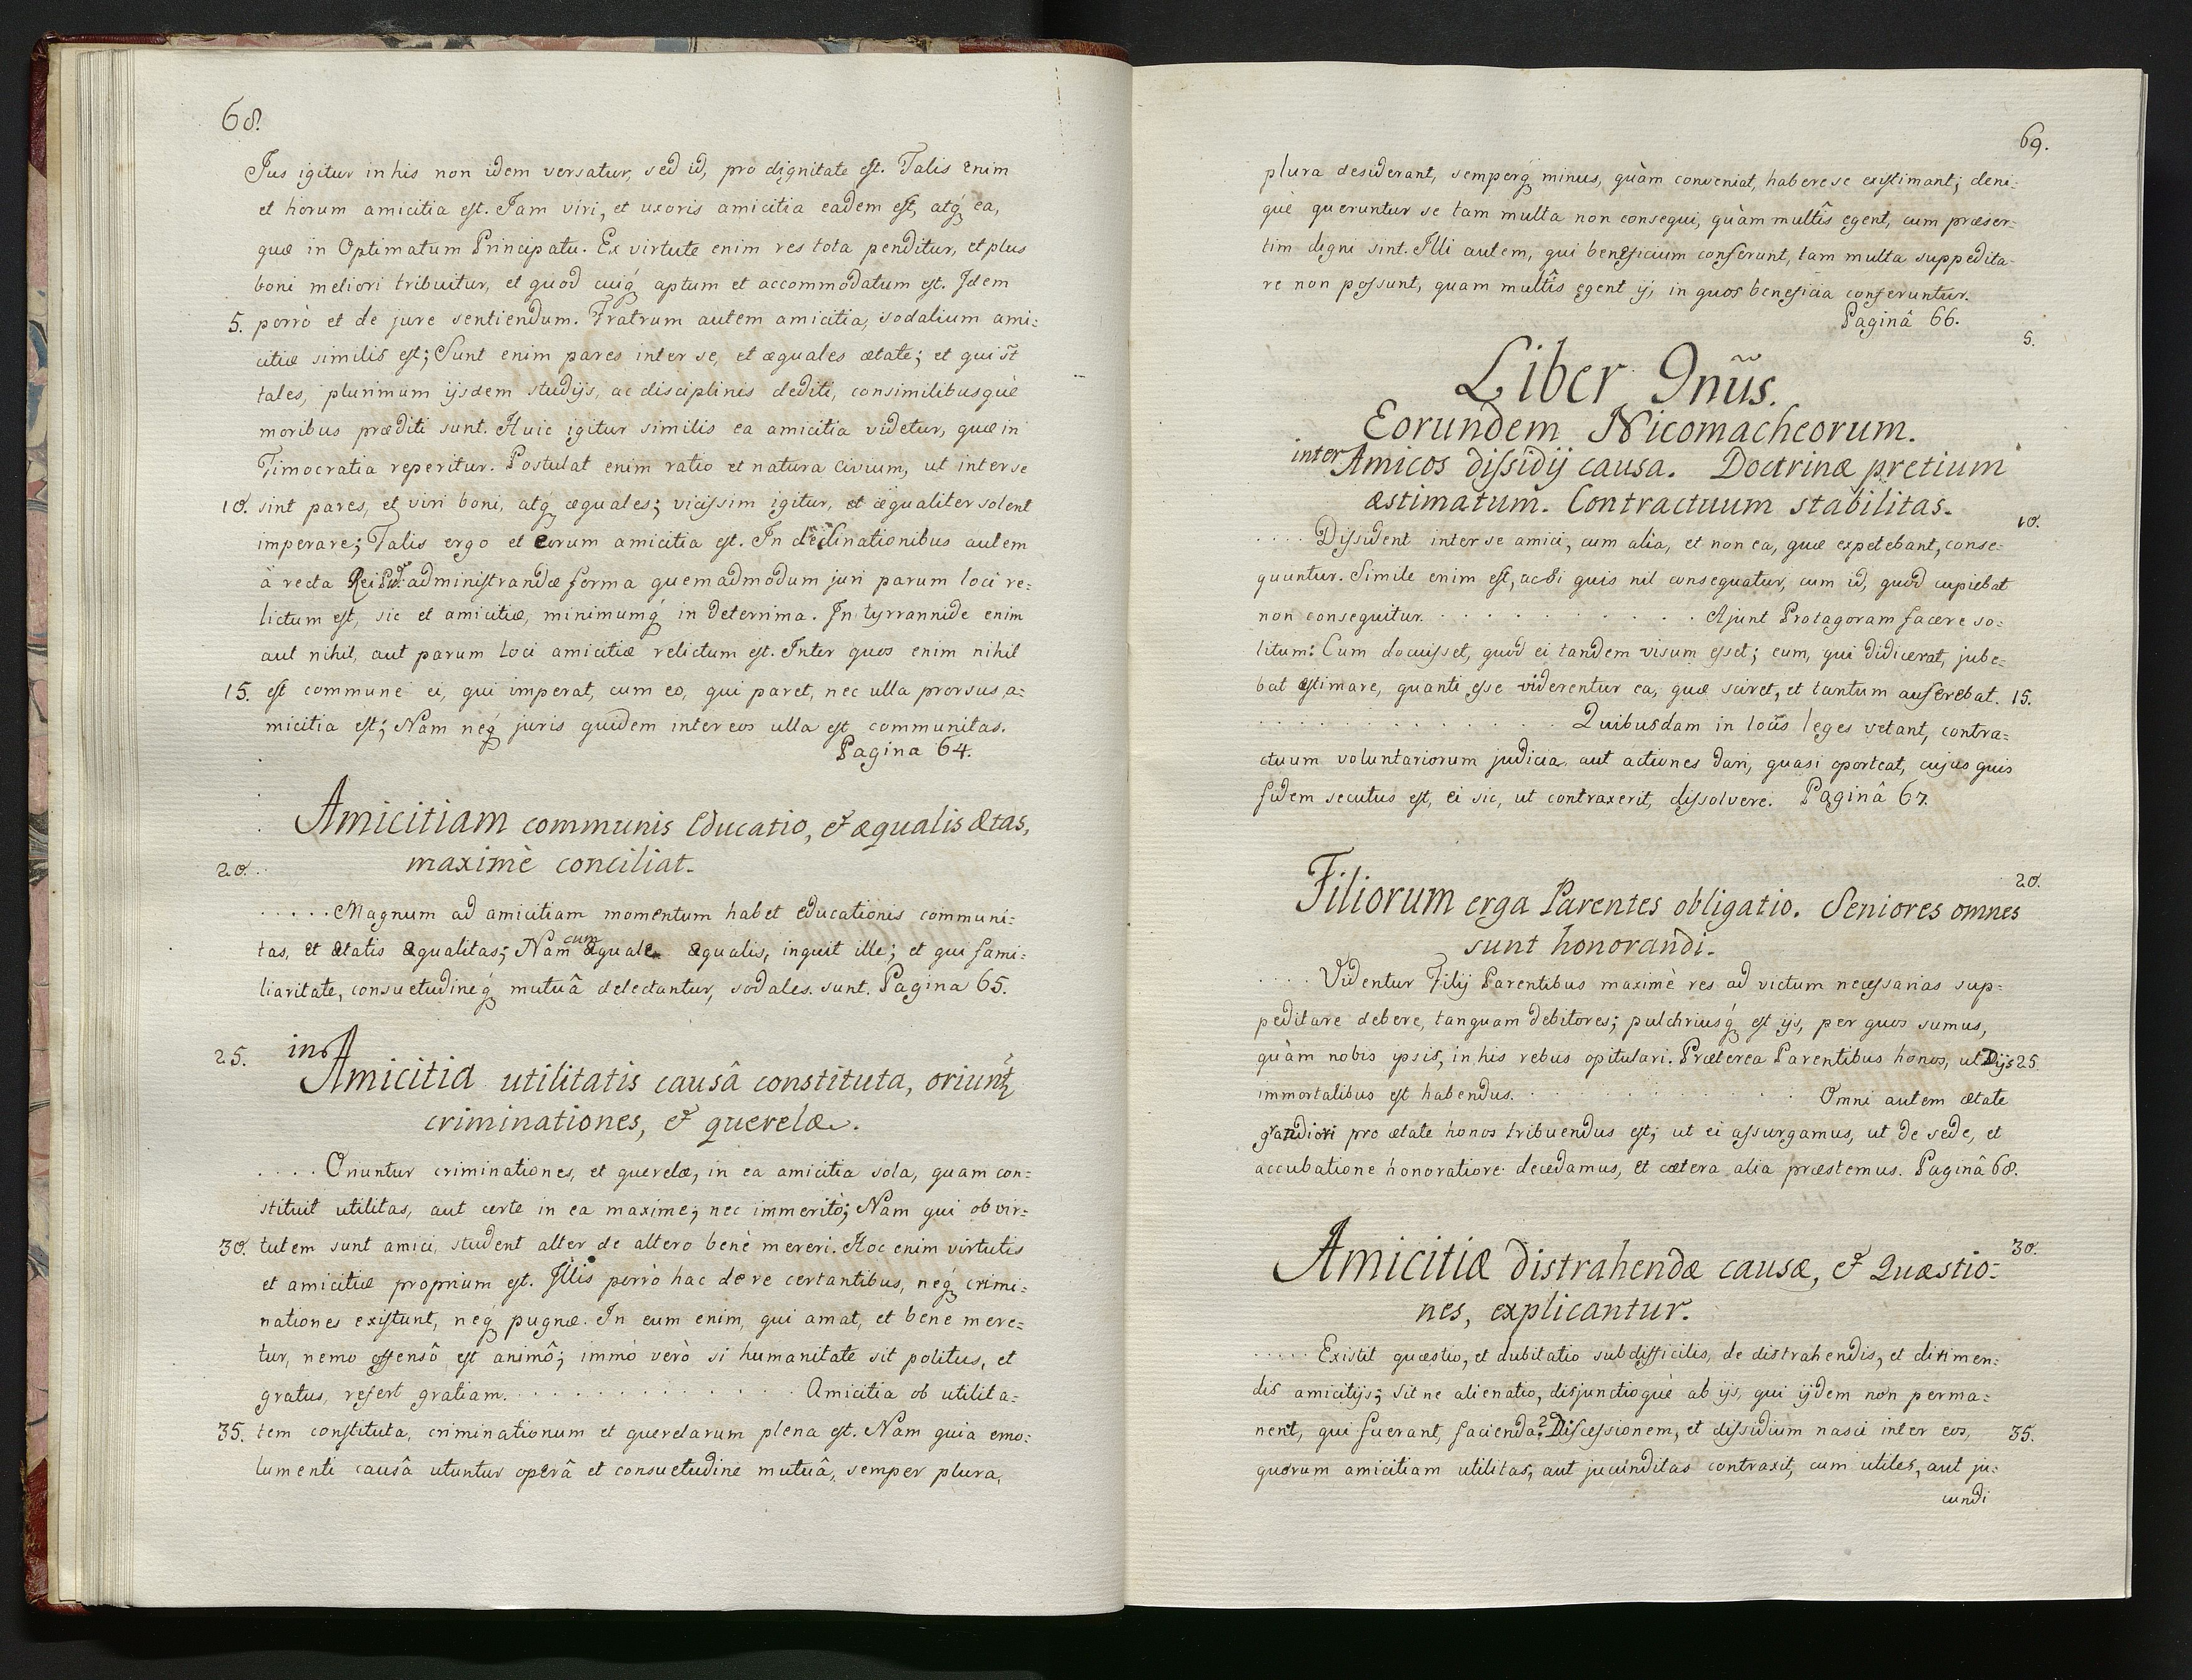 68.
Jus igitur in his non idem versatur, sed id, pro dignitate est. Talis enim
et horum amicitia est. Jam viri, et uxoris amicitia eadem est, atq́ ea,
quæ in Optimatum Principatu. Ex virtute enim res tota penditur, et plus
boni meliori tribuitur, et quod cuiq́ aptum et accommodatum est. Idem
5. porrò et de jure sentiendum. Fratrum autem amicitia, sodalium ami:
citiæ similis est; Sunt enim pares inter se, et æquales ætate; et qui st̃
tales, plurimum ijsdem studijs, ac disciplinis dediti, consimilibusquè
moribus præditi sunt. Huic igitur similis ea amicitia videtur, quæ in
Timocratia reperitur. Postulat enim ratio et natura civium, ut inter se
10. sint pares, et viri boni, atq́ æquales; vicissim igitur, et æqualiter solent
imperare; Talis ergo et eorum amicitia est. In declinationibus autem
à recta Rei Pub. administrandæ forma quemadmodum juri parum loci re:
lictum est, sic et amicitiæ, minimumq́ in deterrima. In tyrrannide enim
aut nihil, aut parum loci amicitiæ relictum est. Inter quos enim nihil
15. est commune ei, qui imperat, cum eo, qui paret, nec ulla prorsus a:
micitia est; Nam neq́ juris quidem inter eos ulla est communitas.
Pagina 64.
Amicitiam communis Educatio, & æqualis ætas,
20. maximè conciliat.
..... Magnum ad amicitiam momentum habet educationis communi:
tas, et ætatis æqualitas; Nam cum æquale æqualis, inquit ille; et qui fami:
liaritate, consuetudineq́ mutuâ delectantur, sodales sunt. Pagina 65.
25. in Amicitia utilitatis causâ constituta, oriunt̃
criminationes, & querelæ.
.... Oriuntur criminationes, et querelæ, in ea amicitia sola, quam con:
stituit utilitas, aut certe in ea maxime; nec immeritò; Nam qui ob vir:
30. tutem sunt amici, student alter de altero benè mereri. Hoc enim virtutis
et amicitiæ proprium est. Illis porrò hac de re certantibus, neq́ crimi:
nationes existunt, neq́ pugnæ. In eum enim, qui amat, et bene mere:
tur, nemo offensô est animô; immò verò si humanitate sit politus, et
gratus, refert gratiam. . . . . . . . . . . . . . . Amicitia ob utilita:
35. tem constituta, criminationum et querelarum plena est. Nam quia emo:
lumenti causâ utuntur operâ et consuetudine mutuâ, semper plura,
69.
plura desiderant, semperq́ minus, quàm conveniat, habere se existimant; deni:
què queruntur se tam multa non consequi, quàm multîs egent, cum præser:
tim digni sint. Illi autem, qui beneficium conferunt, tam multa suppedita:
re non possunt, quam multîs egent ij, in quos beneficia conferuntur.
Paginâ 66.
5.
Liber 9nũs.
Eorundem Nicomacheorum.
inter Amicos dissidij causa. Doctrinæ pretium
æstimatum. Contractuum stabilitas.
10.
.... Dissident inter se amici, cum alia, et non ea, quæ expetebant, conse:
quuntur. Simile enim est, ac si quis nil consequatur, cum id, quod cupiebat
non consequitur. . . . . . . . . . . . . Ajunt Protagoram facere so:
litum: Cum docuisset, quod ei tandem visum esset; eum, qui didicerat, jube:
bat æstimare, quanti esse viderentur ea, quæ sciret, et tantum auferebat. 15.
. . . . . . . . . . . . . . Quibusdam in locis leges vetant, contra:
ctuum voluntariorum judicia aut actiones dari, quasi oporteat, cujus quis
fidem secutus est, ei sic, ut contraxerit, dissolvere. Paginâ 67.
20.
Filiorum erga Parentes obligatio. Seniores omnes
sunt honorandi.
.... Videntur Filij Parentibus maximè res ad victum necessarias sup:
peditare debere, tanquam debitores; pulchriusq́ est ijs, per quos sumus,
quàm nobis ipsis, in his rebus opitulari. Præterea Parentibus honos, ut Dijs 25.
immortalibus est habendus. . . . . . . . . . . Omni autem ætate
grandiori pro ætate honos tribuendus est; ut ei assurgamus, ut de sede, et
accubatione honoratiore decedamus, et cætera alia præstemus. Paginâ 68.
30.
Amicitiæ distrahendæ causæ, & Quæstio:
nes, explicantur.
..... Existit quæstio, et dubitatio subdifficilis, de distrahendis, et dirimen:
dis amicitijs; sit ne alienatio, disjunctioquè ab ijs, qui ijdem non perma:
nent, qui fuerant, facienda? Discessionem, et dissidium nasci inter eos, 35.
quorum amicitiam utilitas, aut jucunditas contraxit, cum utiles, aut ju:
cundi